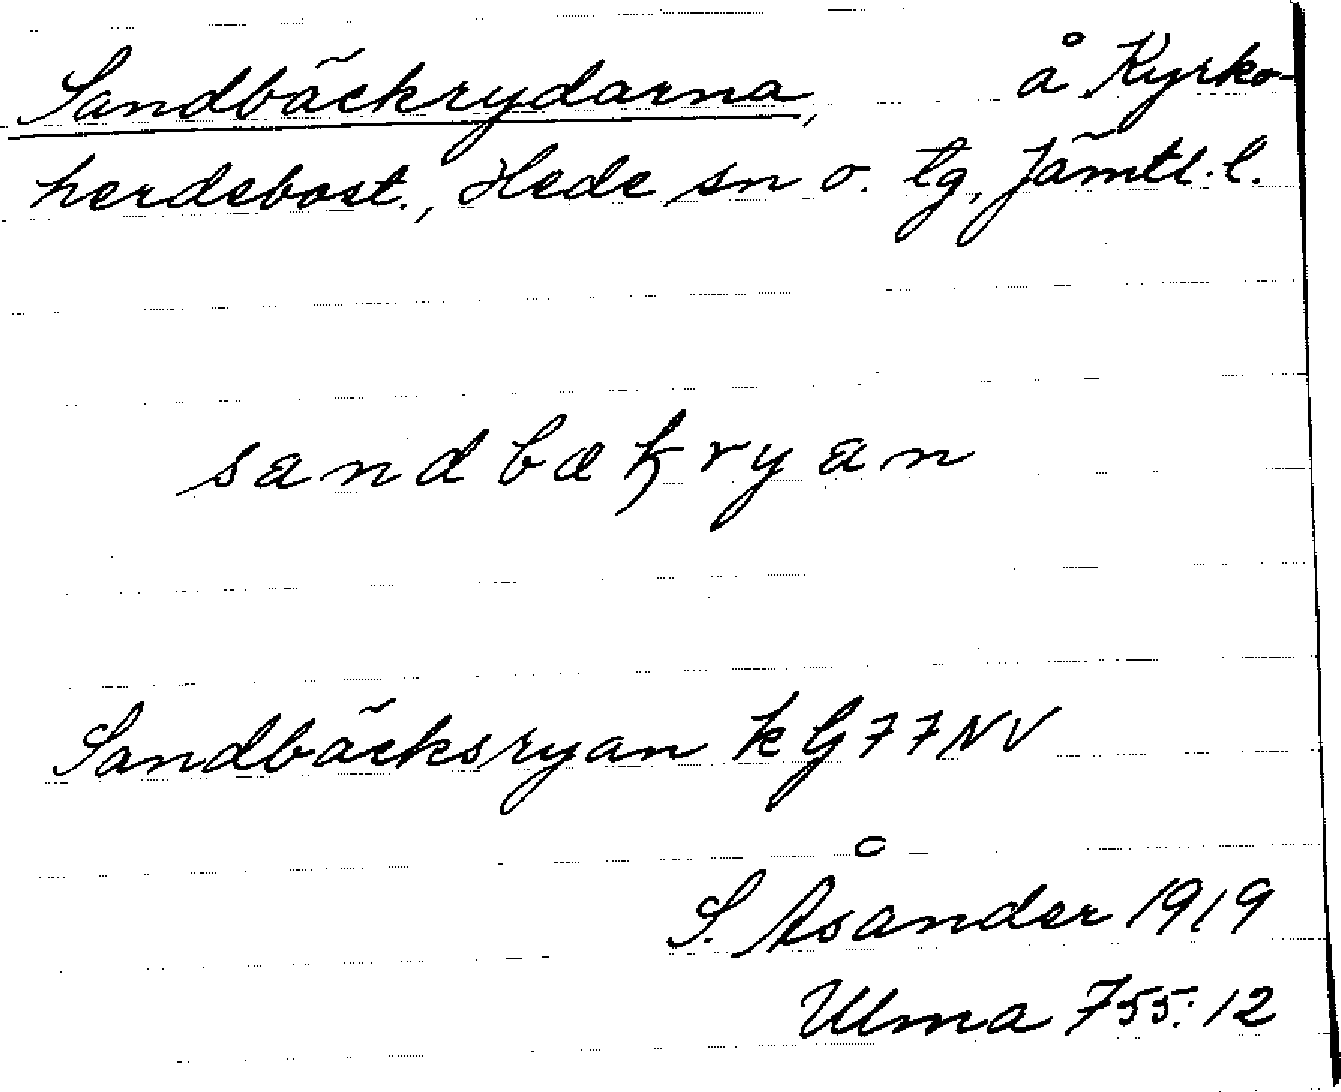 Sandbäckrydarna, å Kyrko-
herdebost., Hede sn o. tg, Jämtl. l.
sandbækryan
Sandbäcksryan kG77NV
S. Åsander 1919
Ulma 755:12